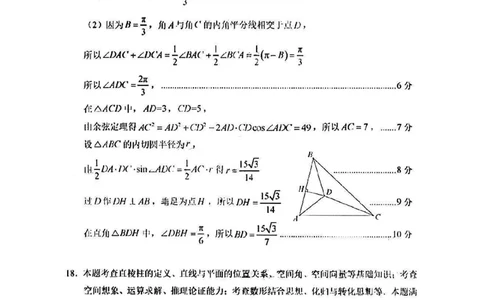 3
(2) 因为B=π/3，角A与角C的内角平分线相交于点D，
所以∠DAC+∠DCA=1/2∠BAC+1/2∠BCA=1/2(π−B)=π/3
所以∠ADC=2π/3，……6分
在△ACD中，AD=3，CD=5，
由余弦定理得AC²=AD²+CD²−2AD·CDcos∠ADC=49，所以AC=7．……7分
设△ABC的内切圆半径为r，
由1/2DA·DC·sin∠ADC=1/2AC·r得r=15√3/14 ……8分
过D作DH⊥AB，垂足为点H，所以DH=15√3/14 ……9分
在直角△BDH中，∠DBH=π/6，所以BD=15√3/7 ……10分
B
H
D
A
C
18．本题考查直棱柱的定义、直线与平面的位置关系、空间角、空间向量等基础知识；考查
空间想象、运算求解、推理论证能力；考查数形结合思想、化归与转化思想等．本题满